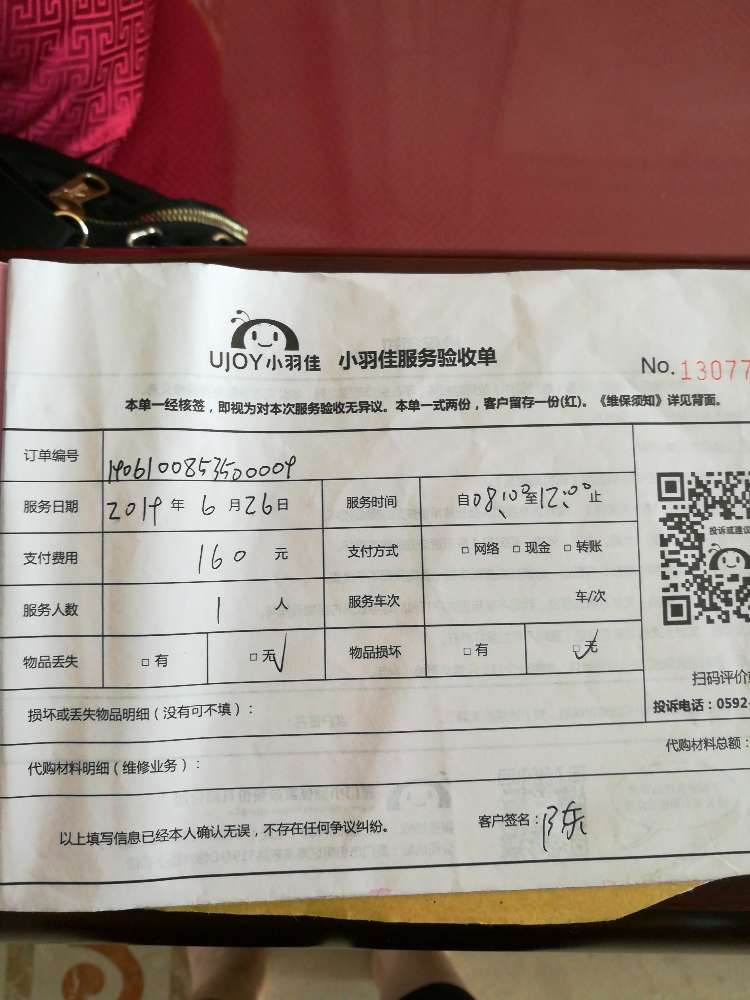 UJOY小羽佳 小羽佳服务验收单 No.13077
本单一经核签，即视为对本次服务验收无异议。本单一式两份，客户留存一份(红)。《维保须知》详见背面。
订单编号 1906100853500009
服务日期 2019 年 6 月 26 日 服务时间 自 08:00 至 12:00 止
投诉或建议
支付费用 160 元 支付方式 □ 网络 □ 现金 □ 转账
服务人数 1 人 服务车次 车/次
物品丢失 □ 有 □ 无 √ 物品损坏 □ 有 □ 无 √
扫码评价
损坏或丢失物品明细（没有可不填）：
投诉电话：0592-
代购材料明细（维修业务）：
代购材料总额：
以上填写信息已经本人确认无误，不存在任何争议纠纷。 客户签名：陈